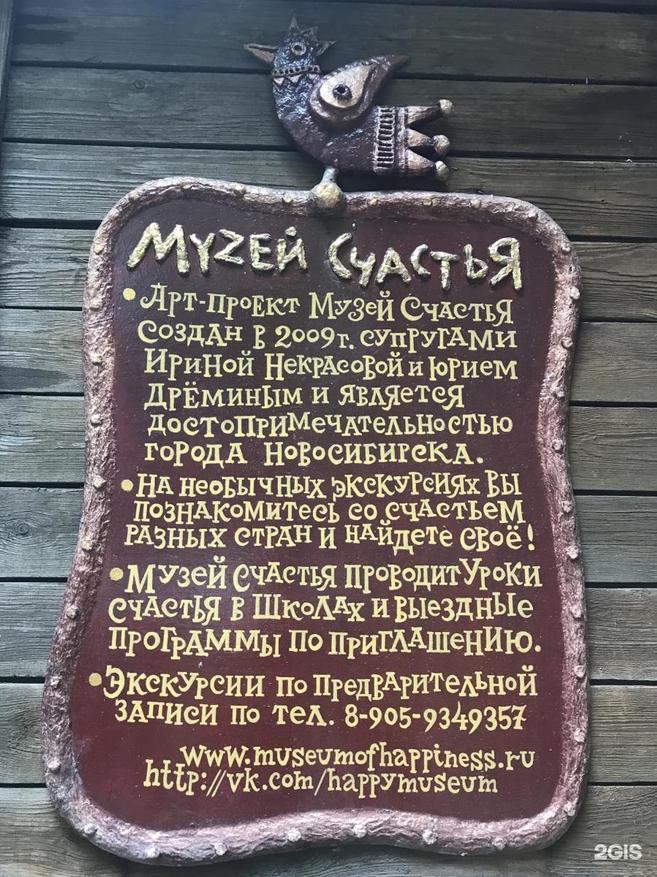 МУZЕЙ СЧАСТЬЯ
• Арт-проект Музей Счастья
создан в 2009г. супругами
Ириной Некрасовой и Юрием
Дрёминым и является
достопримечательностью
города Новосибирска.
• На необычных экскурсиях вы
познакомитесь со счастьем
разных стран и найдете своё!
• Музей Счастья проводит Уроки
счастья в Школах и выездные
программы по приглашению.
• Экскурсии по предварительной
записи по тел. 8-905-9349357
www.museumofhappiness.ru
http://vk.com/happymuseum
2GIS